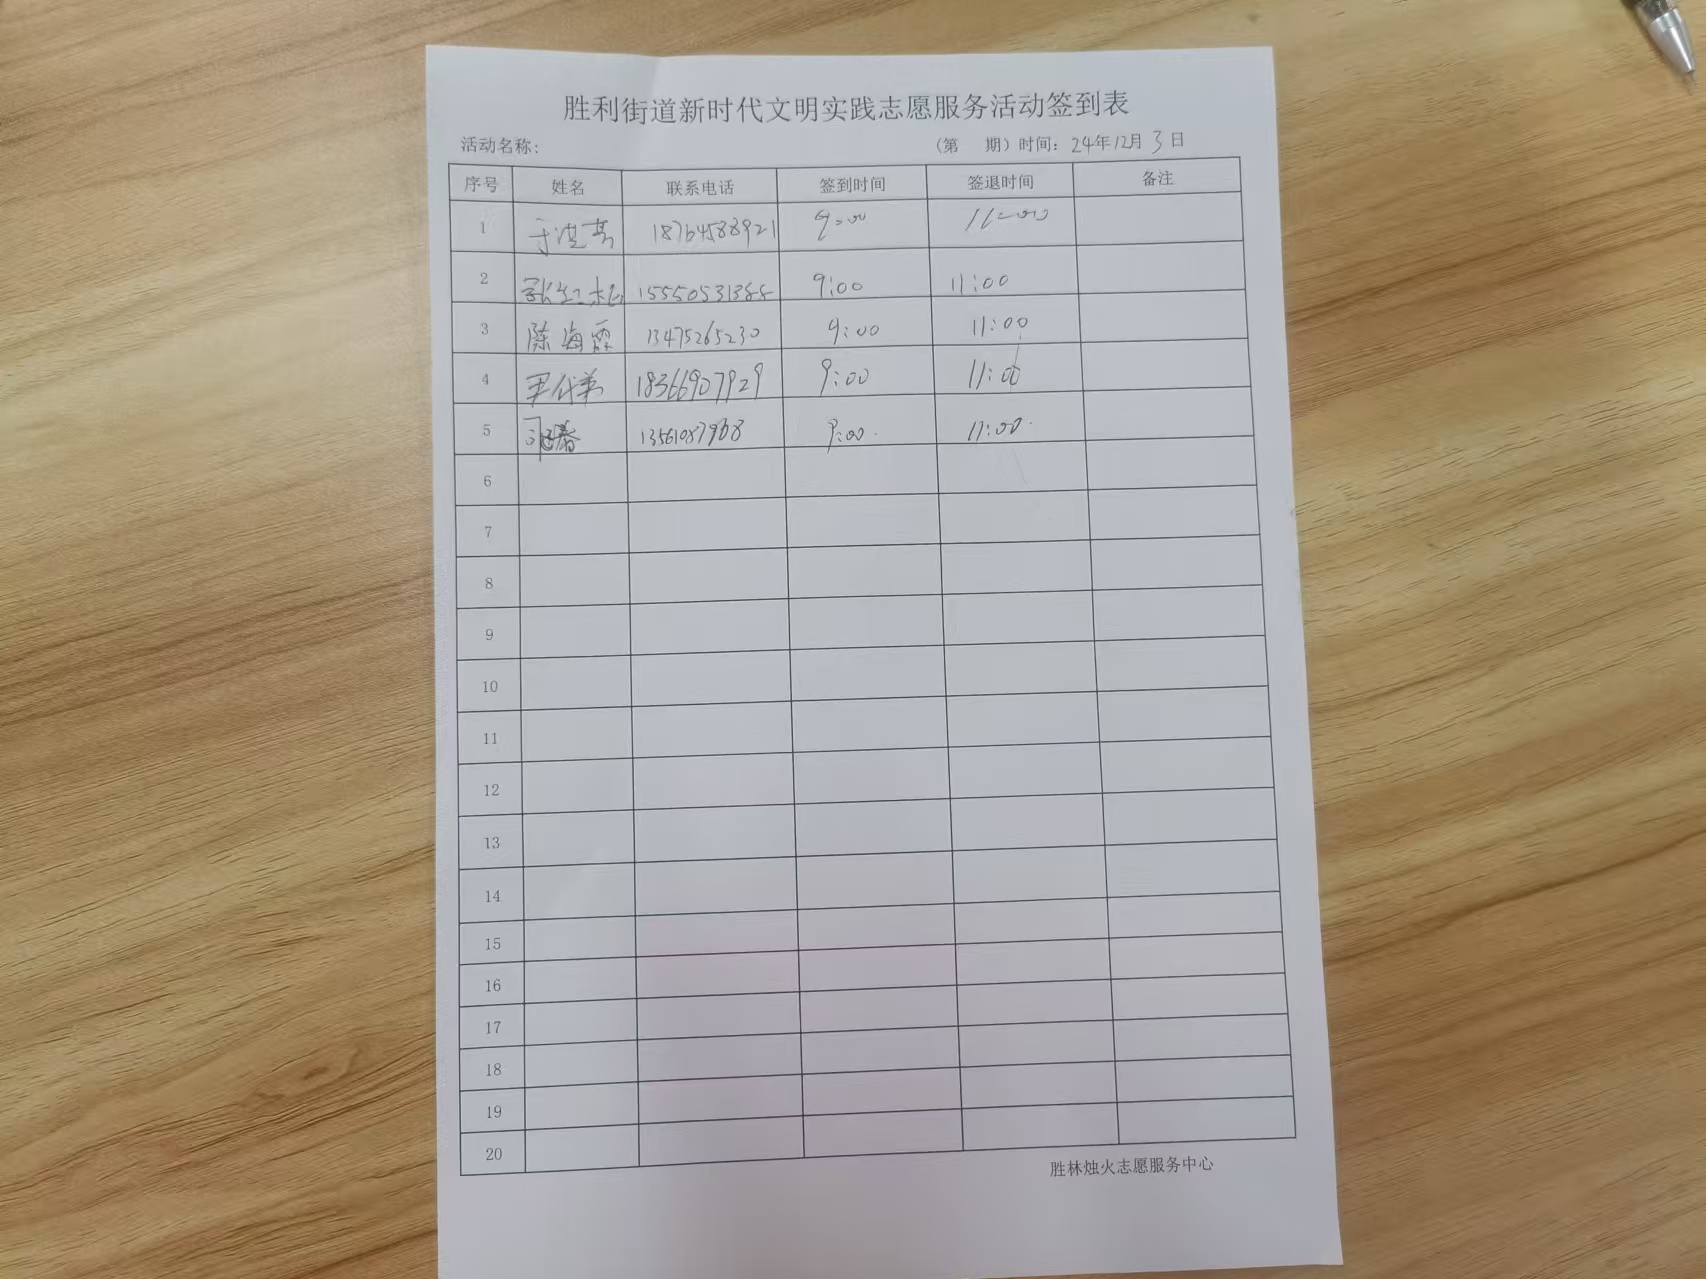 胜利街道新时代文明实践志愿服务活动签到表
活动名称: (第 期) 时间: 24年12月3日
序号 姓名 联系电话 签到时间 签退时间 备注
1 于洪亮 18764588921 9:00 11:00
2 张红 9:00 11:00
3 陈海霞 13475265230 9:00 11:00
4 18366907929 9:00 11:00
5 9:00 11:00
6
7
8
9
10
11
12
13
14
15
16
17
18
19
20
胜林烛火志愿服务中心